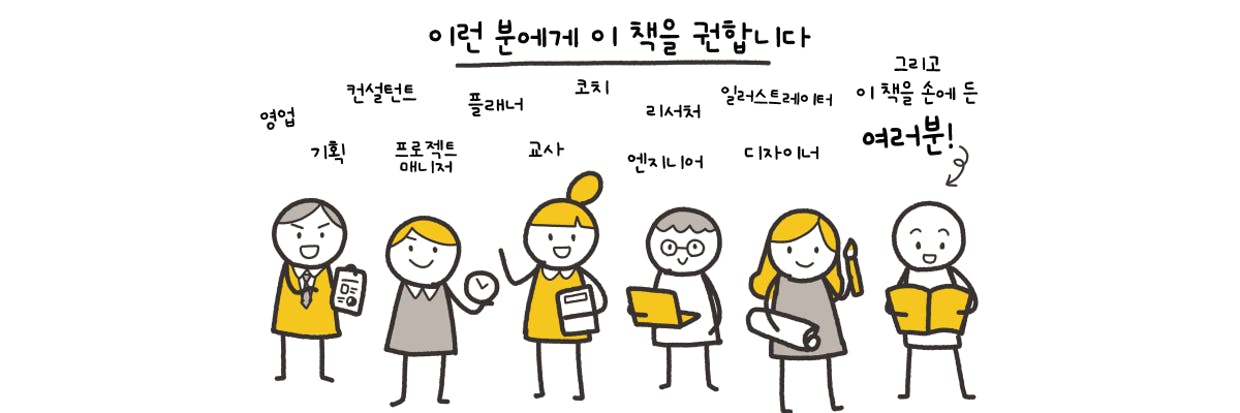 이런 분에게 이 책을 권합니다
영업
기획
컨설턴트
프로젝트
매니저
플래너
교사
코치
리서처
엔지니어
일러스트레이터
디자이너
그리고
이 책을 손에 든
여러분!